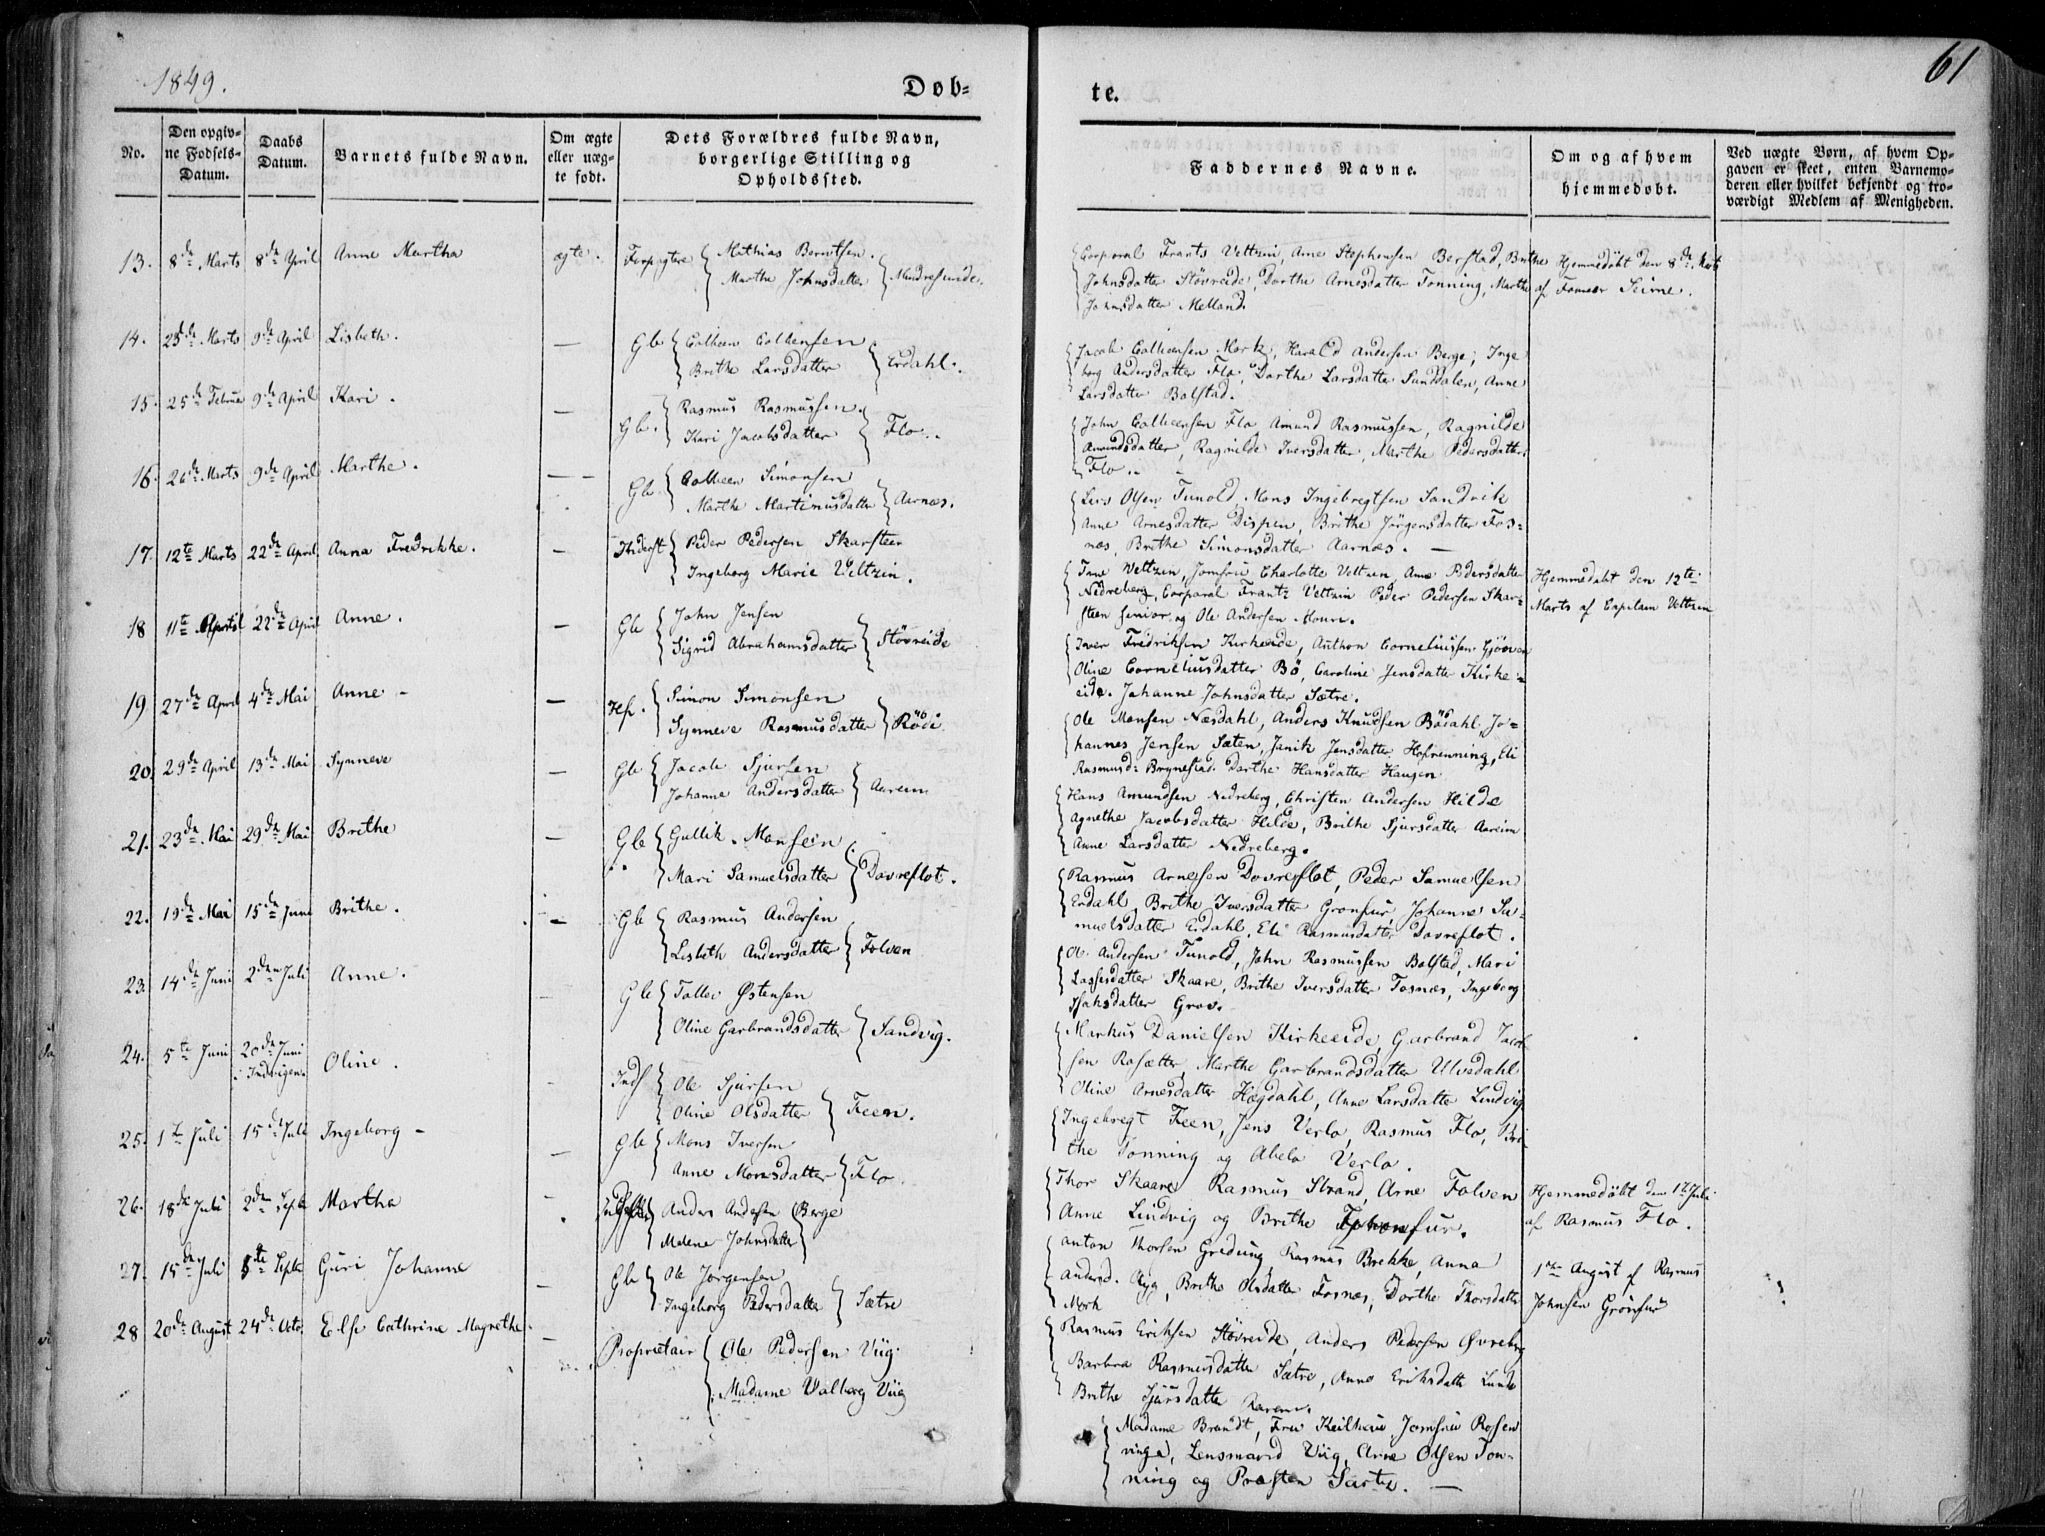 1849.
Døb-
te.
61
No.
Den opgiv-
ne Fødsels-
Datum.
Daabs
Datum.
Barnets fulde Navn.
Om ægte
eller uæg-
te født.
Dets Forældres fulde Navn,
borgerlige Stilling og
Opholdssted.
Faddernes Navne.
Om og af hvem
hjemmedøbt.
Ved uægte Børn, af hvem Op-
gaven er skeet, enten Barnemo-
deren eller hvilket bekjendt og tro-
værdigt Medlem af Menigheden.
13. 8de Marts 8de April Anne Martha ægte. Mathias Berntsen.
Marthe Johnsdatter
Corporal Frants Veltzin, Anne Stephensen Berstad, Brithe Hjemmedøbt den 8de Marts
Johnsdatter Støvreide, Dorthe Arnesdatter Tonning, Marthe af
Johnsdatter Melland.
14. 25de Marts 9de April Lisbeth. — Gb
Brithe Larsdatter Erdahl.
Mork, Harald Andersen Berge, Inge
borg Andersdatter Flo, Dorthe Larsdatter Sunddalen, Anne
Larsdatter Bolstad.
15. 25de Februar 9de April Kari. — Gb. Rasmus Rasmussen.
Kari Jacobsdatter Flo.
John Flo Amund Rasmussen, Ragnilde
Amundsdatter, Ragnilde Iversdatter, Marthe Pedersdatter
Flo.
16. 26de Marts 9de April Marthe. — Gb. Simonsen
Marthe Martinusdatter Aarnæs.
Olsen Tunold Mons Ingebregtsen Sandvik
Anne Arnesdatter Dispen, Brithe Jörgensdatter Fos-
næs, Brithe Simonsdatter Aarnæs. —
17. 12te Marts 22de April Anna Fredrikke. — Inderst Peder Pedersen Skarsteen
Ingeborg Marie Veltzin.
Frue Veltzen, Jomfru Charlotte Veltzen, Anne Pedersdatter Hjemmedøbt den 12te
Nedreberg, Corporal Frantz Veltzin Peder Pedersen Skar- Marts af Capitain Veltzin
steen senior, og Ole Andersen Moure.
18 11te April 22de April Anne. — Gb John Jensen
Sigrid Abrahamsdatter Støvreide
Iver Fredriksen Kirkeeide, Anthon Corneliussen Gjörven
Oline Corneliusdatter Bö, Caroline Jensdatter Kirke-
eide. Johanne Johnsdatter Sætre.
19 27de April 4de Mai Anne — Simon Simonsen
Synneve Rasmusdatter Röði
Ole Monsen Næsdahl, Anders Knudsen Bödahl, Jo-
hannes Jensen Sæten, Janik Jensdatter Hofrenning, Eli
Rasmusd: Brynestad. Dorthe Hansdatter Haugen
20. 29de April 13de Mai Synneve — Gb Jacob Sjursen
Johanne Andersdatter Aareim
Hans Amundsen Nedreberg, Christen Andersen Hilde
Agnethe Jacobsdatter Hilde, Brithe Sjursdatter Aareim
Anne Larsdatter Nedreberg.
21. 23de Mai 29de Mai Brithe — Gb Gullik Monsen
Mari Samuelsdatter Dovreflot.
Rasmus Arnesen Dovreflot, Peder Samuelsen
Erdahl, Brithe Iversdatter Gronfur, Johanne Sa-
muelsdatter Erdahl, Eli Rasmusdatter Dovreflot.
22. 19de Mai 15de Juni Brithe. — Gb Rasmus Andersen
Lisbeth Andersdatter Folven
Ole Andersen Tunold, John Rasmussen Bolstad, Mari
Lassesdatter Skaare, Brithe Iversdatter Fosnæs, Ingeborg
Isaksdatter Grov.
23. 14de Juni 2den Juli Anne. — Gb Tollev Østensen
Oline Garbrandsdatter Sandvig.
Markus Danielsen Kirkeeide, Garbrand Jacob
sen Rosætter, Marthe Garbrandsdatter Ulvedahl
Oline Arnesdatter Hægdahl, Anne Larsdatter Lindvig
24. 5te Juni 20de Juni i Indvigen. Oline. Inds Ole Sjursen
Oline Olsdatter Feen.
Ingebregt Feen, Jens Verlo, Rasmus Flo, Bri
the Tonning og Abelo Verlo.
25. 1te Juli 15de Juli Ingeborg — Gb Mons Iversen
Anne Monsdatter Flo
Thor Skaare Rasmus Strand, Arne Folven Hjemmedøbt den 1te Juli
Anne Lindvig og Brithe Gronfur. af Rasmus Flo.
26. 18de Juli 2den Septb Martha Anders Andersen Berge
Malene Johnsdatter
Anton Thorsen Gredung, Rasmus Brekke, Anna 1ste August af Rasmus
Andersd. Ryg, Brithe Olsdatter Fosnæs, Dorthe Thorsdatter Johnsen Gronfur
Mork
27. 15de Juli 5te Septb Guri Johanne — Gb Ole Jörgensen
Ingeborg Pedersdatter Sætre
Rasmus Eriksen Støvreide, Anders Pedersen Øvreberg
Barbra Rasmusdatter Sætre, Anne Eriksdatter Lunde
Brithe Sjursdatter
28 20de August 24de Octo. Else Cathrine Magrethe. — Proprietair Ole Pedersen Viig
Madame Valborg Viig
Madame Brandt, Frue Jomfru Rosen
vinge, Lensmand Viig, Arne Olsen Ton-
ning og Præsten Sartz. —